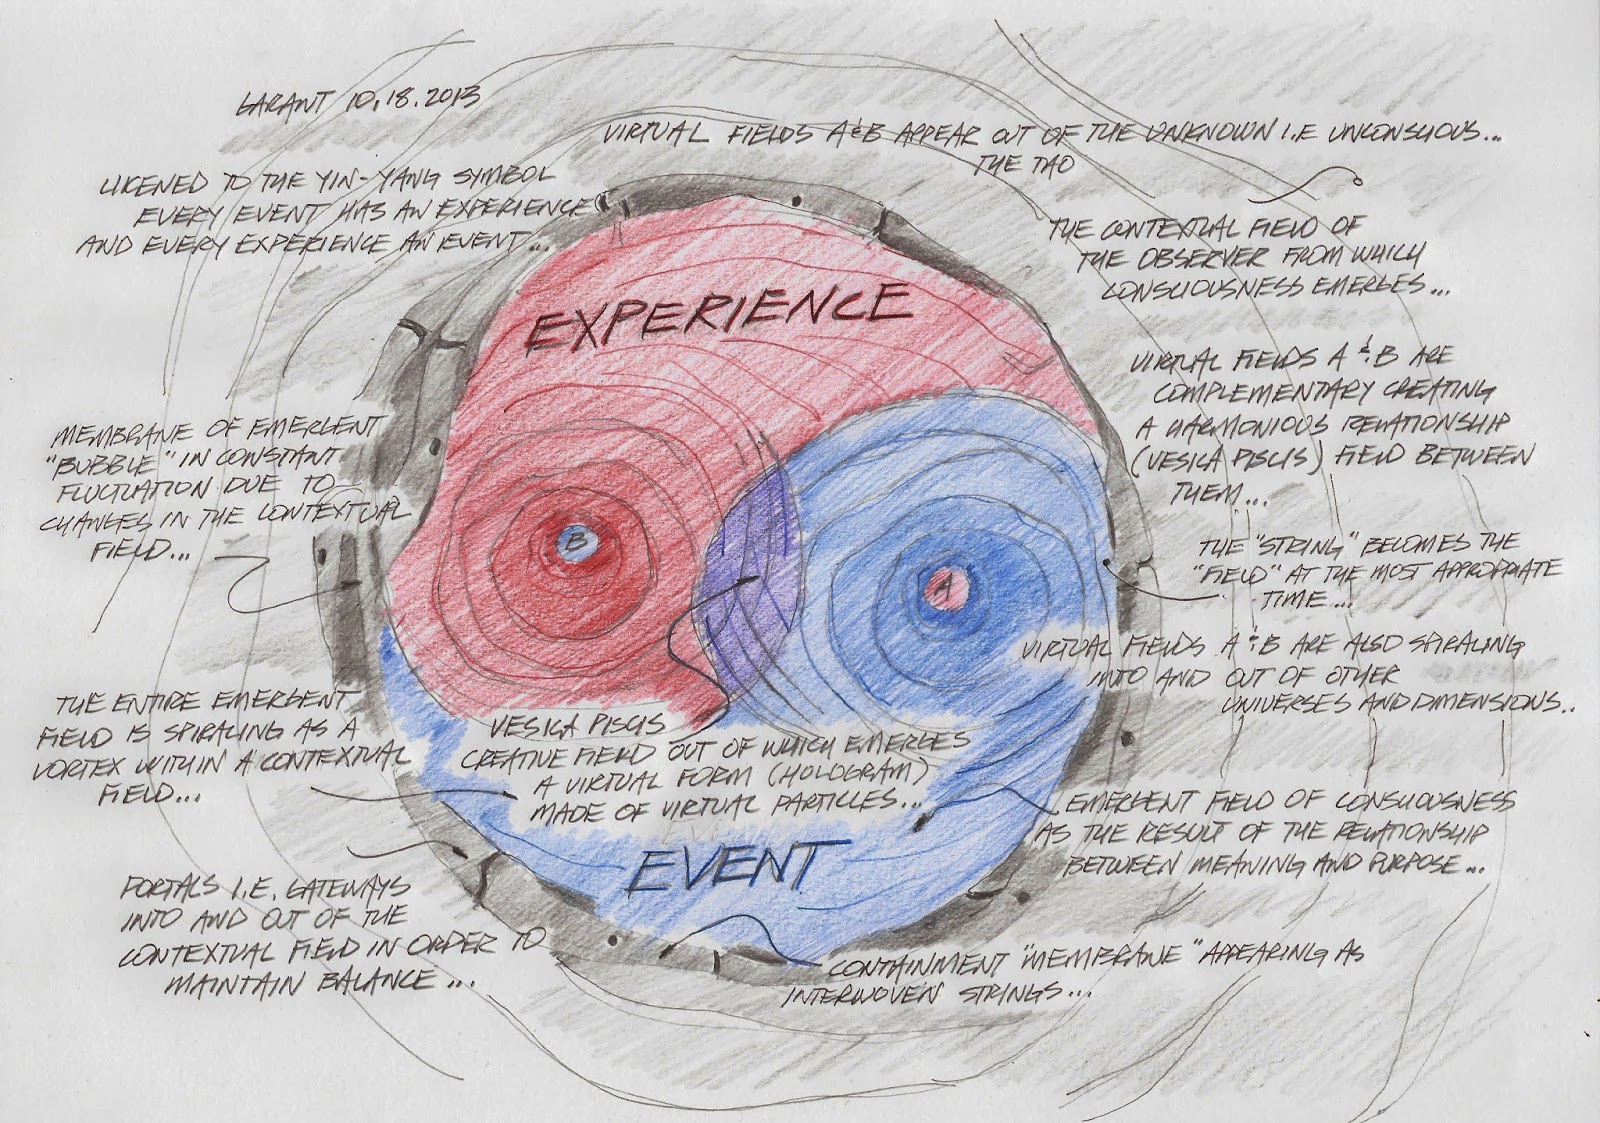 GARANT 10.18.2013
VIRTUAL FIELDS A & B APPEAR OUT OF THE UNKNOWN I.E UNCONSCIOUS...
THE TAO
LIKENED TO THE YIN-YANG SYMBOL
EVERY EVENT HAS AN EXPERIENCE
AND EVERY EXPERIENCE AN EVENT...
THE CONTEXTUAL FIELD OF
THE OBSERVER FROM WHICH
CONSCIOUSNESS EMERGES...
EXPERIENCE
VIRTUAL FIELDS A & B ARE
COMPLEMENTARY CREATING
A HARMONIOUS RELATIONSHIP
(VESICA PISCIS) FIELD BETWEEN
THEM...
MEMBRANE OF EMERGENT
"BUBBLE" IN CONSTANT
FLUCTUATION DUE TO
CHANGES IN THE CONTEXTUAL
FIELD...
B
A
THE "STRING" BECOMES THE
"FIELD" AT THE MOST APPROPRIATE
TIME...
VIRTUAL FIELDS A & B ARE ALSO SPIRALING
INTO AND OUT OF OTHER
UNIVERSES AND DIMENSIONS..
THE ENTIRE EMERGENT
FIELD IS SPIRALING AS A
VORTEX WITHIN A CONTEXTUAL
FIELD...
VESICA PISCIS
CREATIVE FIELD OUT OF WHICH EMERGES
A VIRTUAL FORM (HOLOGRAM)
MADE OF VIRTUAL PARTICLES...
EMERGENT FIELD OF CONSCIOUSNESS
AS THE RESULT OF THE RELATIONSHIP
BETWEEN MEANING AND PURPOSE...
EVENT
PORTALS I.E. GATEWAYS
INTO AND OUT OF THE
CONTEXTUAL FIELD IN ORDER TO
MAINTAIN BALANCE...
CONTAINMENT "MEMBRANE" APPEARING AS
INTERWOVEN STRINGS...